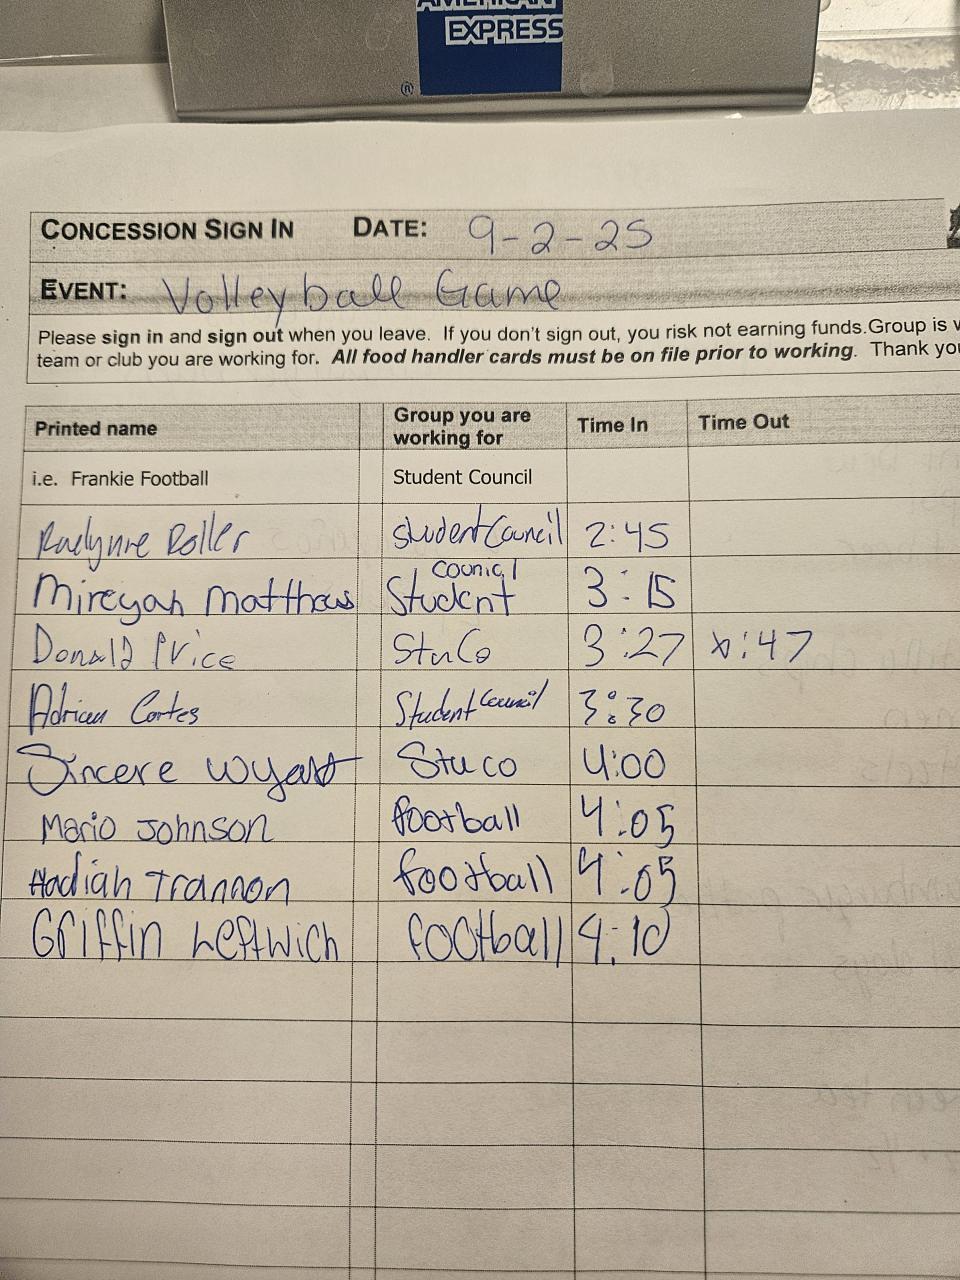 AMERICAN
EXPRESS
®
CONCESSION SIGN IN DATE: 9-2-25
EVENT: Volleyball Game
Please sign in and sign out when you leave. If you don't sign out, you risk not earning funds.Group is
team or club you are working for. All food handler cards must be on file prior to working. Thank
Printed name Group you are working for Time In Time Out
i.e. Frankie Football Student Council
Roller Student Council 2:45
Mireyah Matthews Student Council 3:15
Donald Price StuCo 3:27 :47
Cortes Student Council 3:30
Sincere Wyatt Stuco 4:00
Mario Johnson football 4:05
Hadiah Trannon football 4:05
Griffin Leftwich football 4:10